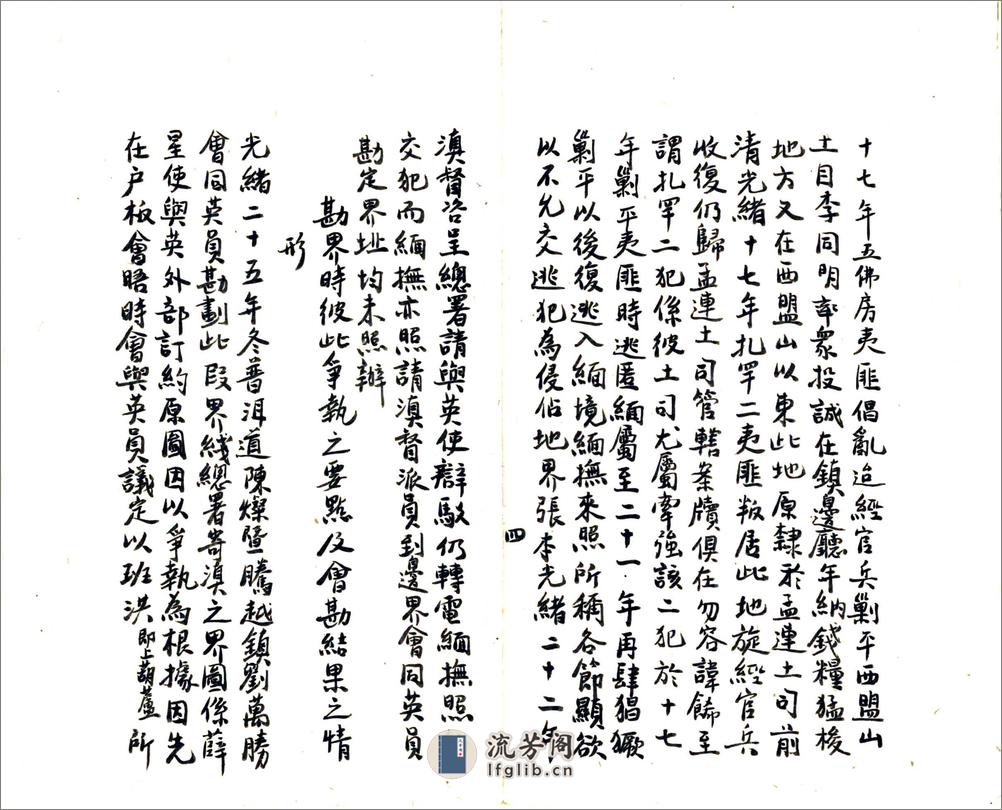 十七年五佛房夷匪倡亂迨經官兵剿平西盟山
土目李同明率衆投誠在鎮邊廳年納錢糧猛梭
地方又在西盟山以東此地原隸於孟連土司前
清光緒十七年扎罕二夷匪叛居此地旋經官兵
收復仍歸孟連土司管轄案牘俱在勿容諱餙至
謂扎罕二犯係彼土司尤屬牽強該二犯於十七
年剿平夷匪時逃匿緬屬至二十一年再肆猖獗
剿平以後復逃入緬境緬撫來照所稱各節顯欲
以不允交逃犯為侵佔地界張本光緒二十二年
四
滇督咨呈總署請與英使辯駁仍轉電緬撫照
交犯而緬撫亦照請滇督派員到邊界會同英員
勘定界址均未照辦
勘界時彼此爭執之要點及會勘結果之情
形
光緒二十五年冬普洱道陳燦暨騰越鎮劉萬勝
會同英員勘劃此段界綫總署寄滇之界圖係薛
星使與英外部訂約原圖因以爭執為根據因先
在户板會晤時會與英員議定以班洪即上葫蘆所
流芳阁
lfglib.cn